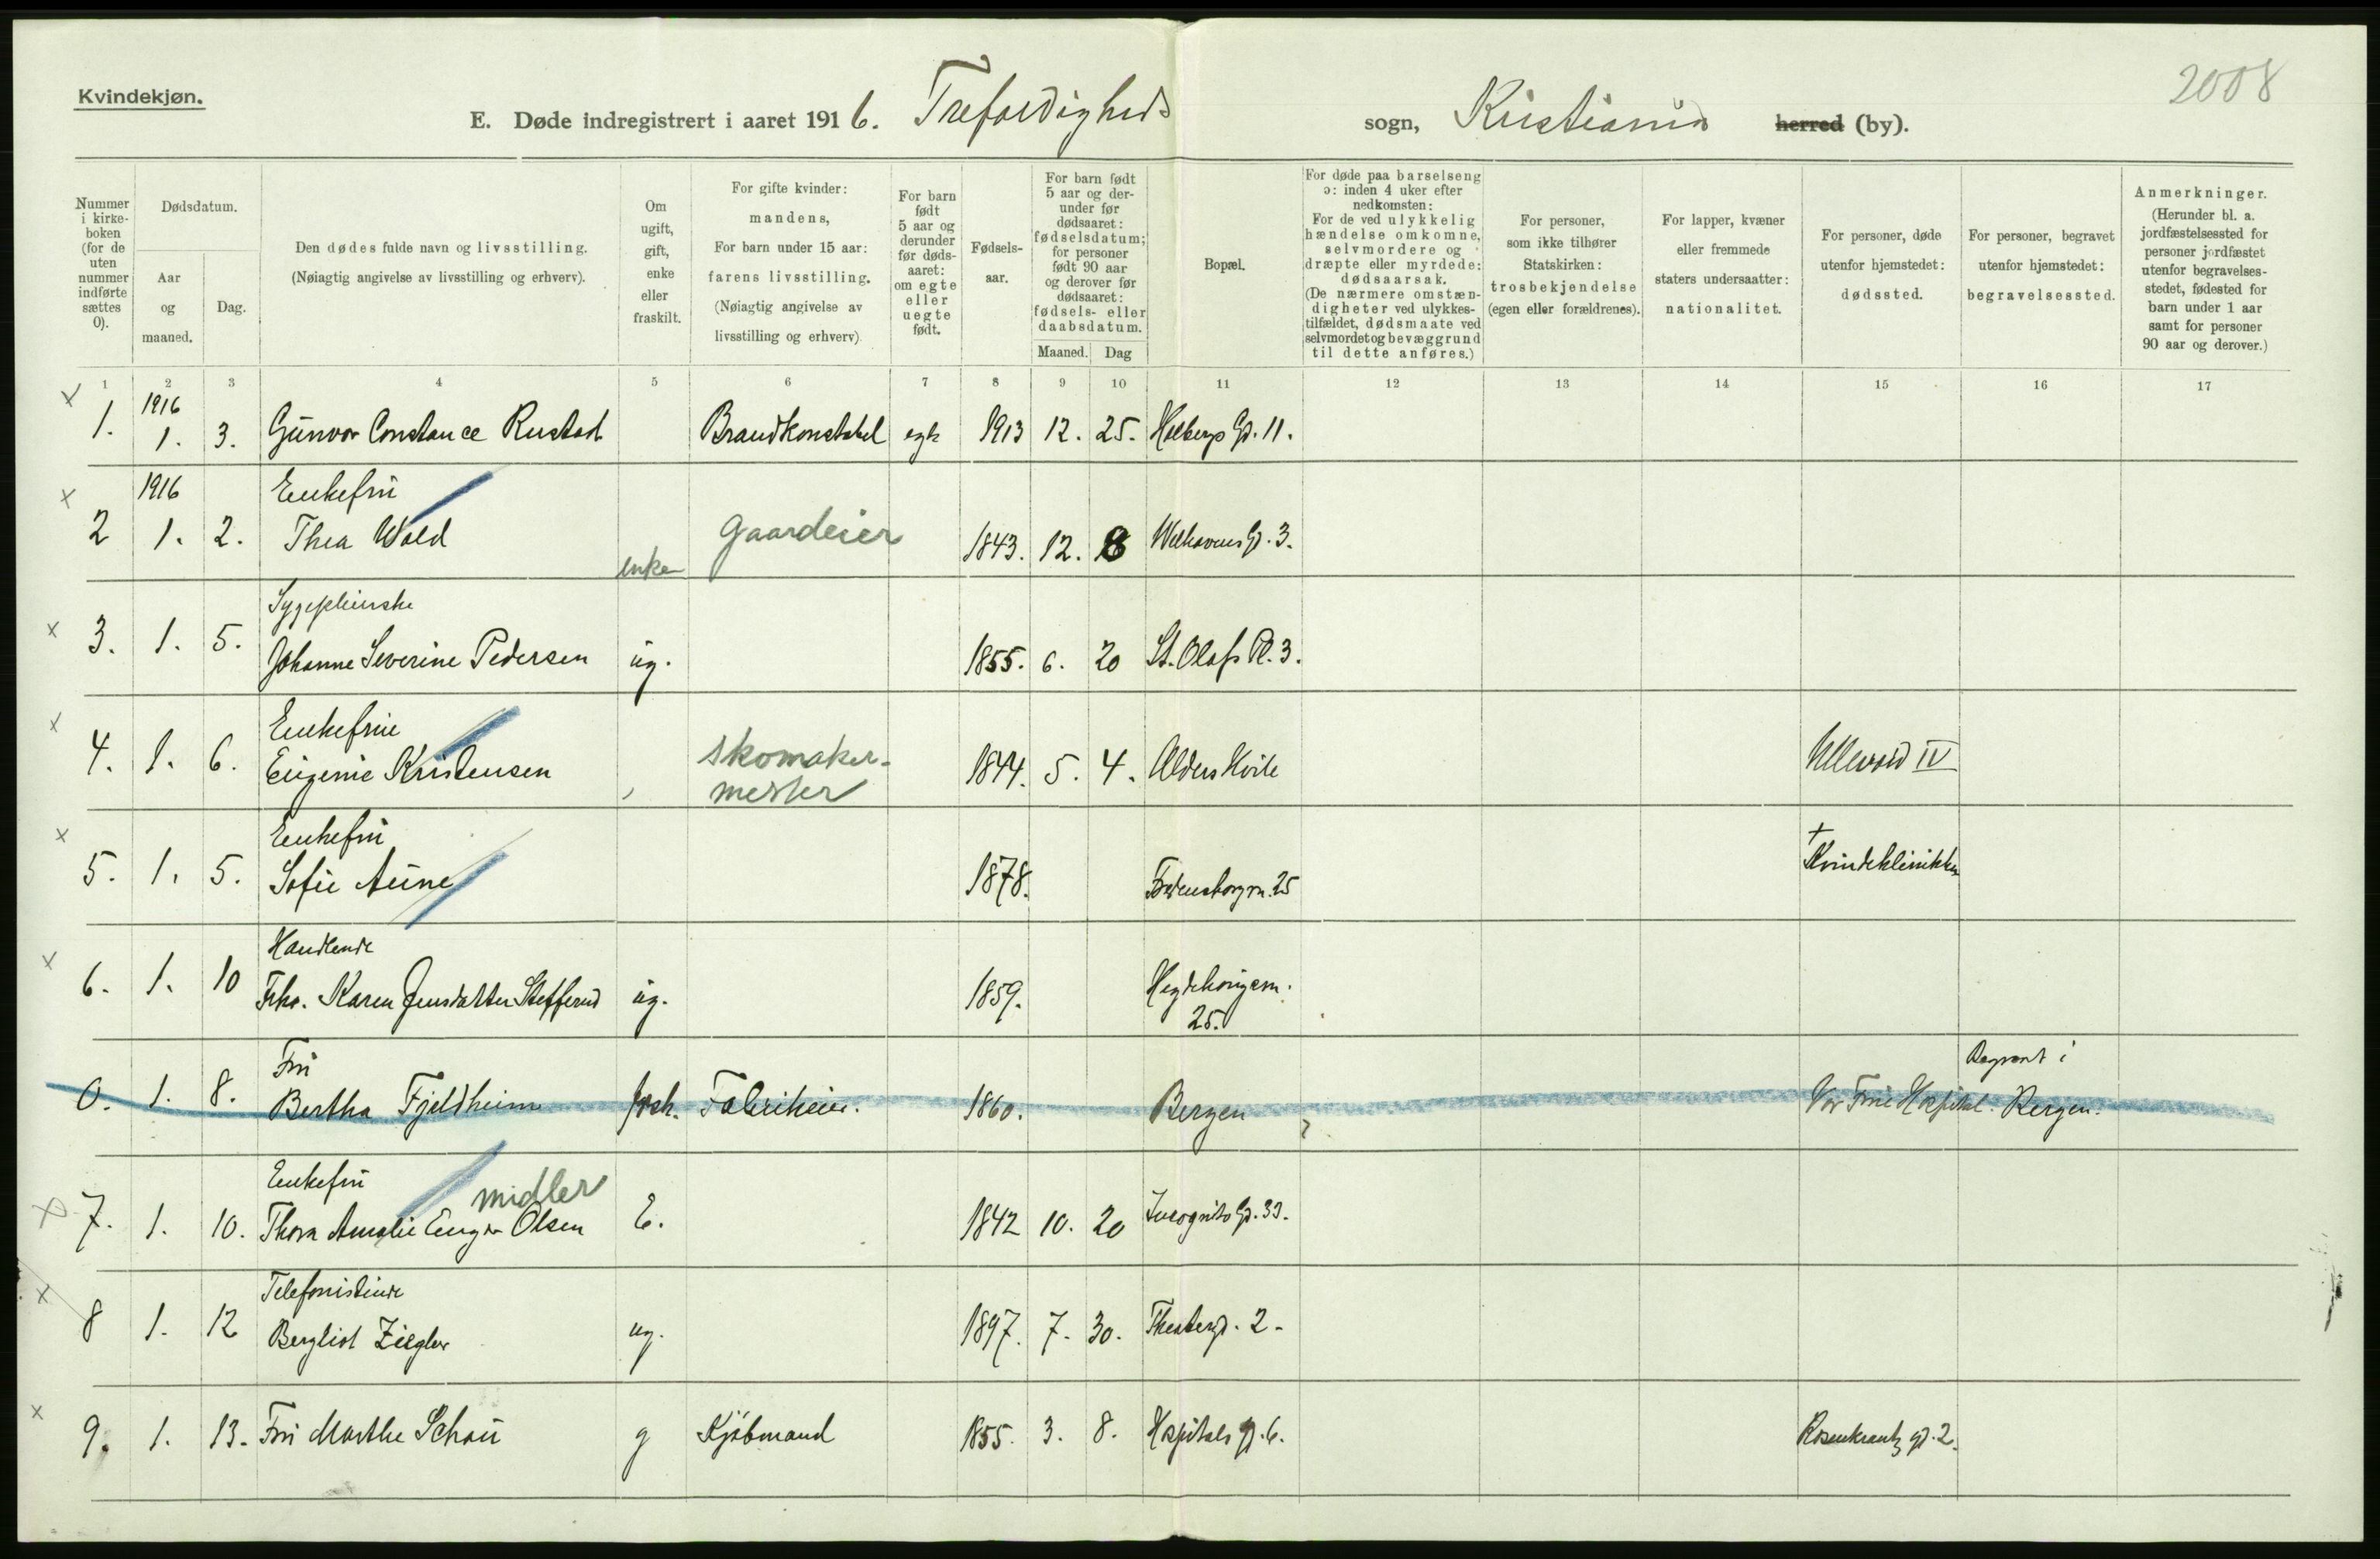 2008
Kvindekjøn.
E. Døde indregistrert i aaret 1916. Trefoldigheds sogn, Kristiania herred (by).
Nummer i kirkeboken (for de uten nummer indførte sættes 0).
Dødsdatum.
Aar og maaned.
Dag.
Den dødes fulde navn og livsstilling.
(Nøiagtig angivelse av livsstilling og erhverv).
Om ugift, gift, enke eller fraskilt.
For gifte kvinder: mandens,
For barn under 15 aar: farens livsstilling.
(Nøiagtig angivelse av livsstilling og erhverv)
For barn født 5 aar og derunder før dødsaaret: om egte eller uegte født.
Fødselsaar.
For barn født 5 aar og derunder før dødsaaret: fødselsdatum; for personer født 90 aar og derover før dødsaaret: fødsels- eller daabsdatum.
Maaned. Dag
Bopæl.
For døde paa barselseng ɔ: inden 4 uker efter nedkomsten:
For de ved ulykkelig hændelse omkomne, selvmordere og dræpte eller myrdede: dødsaarsak.
(De nærmere omstændigheter ved ulykkestilfældet, dødsmaate ved selvmordet og bevæggrund til dette anføres.)
For personer, som ikke tilhører Statskirken: trosbekjendelse (egen eller forældrenes).
For lapper, kvæner eller fremmede staters undersaatter: nationalitet.
For personer, døde utenfor hjemstedet: dødssted.
For personer, begravet utenfor hjemstedet: begravelsessted.
Anmerkninger.
(Herunder bl. a. jordfæstelsessted for personer jordfæstet utenfor begravelsesstedet, fødested for barn under 1 aar samt for personer 90 aar og derover.)
1 2 3 4 5 6 7 8 9 10 11 12 13 14 15 16 17
x 1916
1. 1. 3. Gunvor Constance Rustad Brandkonstabel egte 1913 12. 25. Holbergs Gd. 11.
x 1916 Enkefru
2 1. 2. Thea Wold enke Gaardeier 1843. 12. 8 Welhavens Gd. 3.
x Sygepleierske
3. 1. 5. Johanne Severine Pedersen ug. 1855. 6. 20 St. Olafs Pl. 3.
x Enkefrue
4. 1. 6. Eugenie Kristensen skomakermester 1844. 5. 4. Alders Hvile Ullevold IV
x Enkefru
5. 1. 5. Sofie Aune 1878. Fredensborgvn. 25 + Kvindeklinikken
x Handlende
6. 1. 10 Frk. Karen Jensdatter Stefferud ug. 1859. Hegdehaugsvn. 25.
Fru Begravet i
0. 1. 8. Bertha Fjeldheim frsk. Fabrikeier. 1860. Bergen Vor Frue Hospital. Bergen.
x Enkefru midler
7. 1. 10. Thora Amalie Enger Olsen E. 1842 10. 20 Incognito Gd. 33.
x Telefonistinde
8 1. 12 Bergliot Ziegler ug. 1897. 7. 30. Theatergd. 2.
x
9. 1. 13. Fru Marthe Schou g Kjøbmand 1855. 3. 8. Hospitals gd. 6. Rosenkrantz gd. 2.